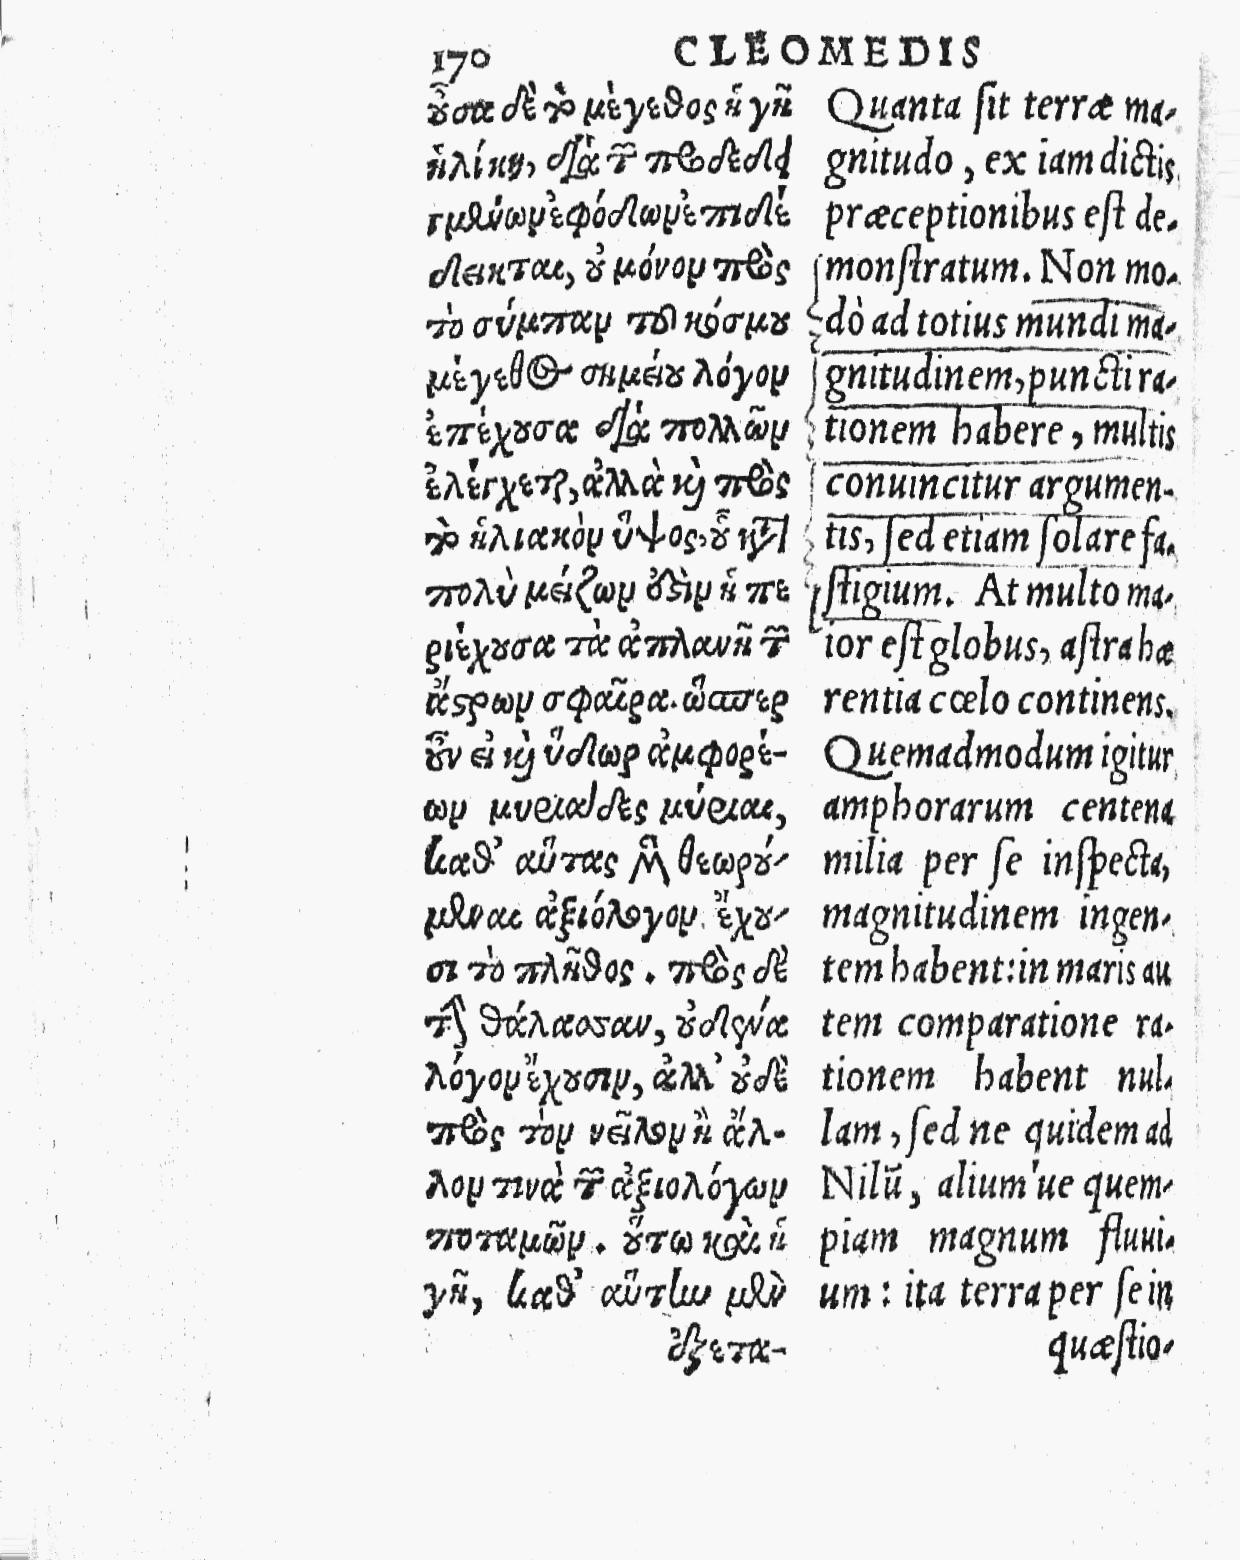 170 CLEOMEDIS
οὖσα δὲ τὸ μέγεθος ἡ γῆ
ἡλίκη, διὰ τῶν προδεδει
γμένων ἐφόδων ἐπιδέ
δεικται, οὐ μόνον πρὸς
τὸ σύμπαν τοῦ κόσμου
μέγεθος σημείου λόγον
ἐπέχουσα διὰ πολλῶν
ἐλέγχεται, ἀλλὰ καὶ πρὸς
τὸ ἡλιακὸν ὕψος, οὗ κατὰ
πολὺ μείζων ἐστὶν ἡ πε
ριέχουσα τὰ ἀπλανῆ τῶν
ἄστρων σφαῖρα. ὥσπερ
οὖν εἰ καὶ ὕδωρ ἀμφορέ-
ων μυριάδες μύριαι,
καθ᾽ αὕτας μὲν θεωρού-
μεναι ἀξιόλογον ἔχου-
σι τὸ πλῆθος. πρὸς δὲ
τὴν θάλασσαν, οὐδένα
λόγον ἔχουσιν, ἀλλ᾽ οὐδὲ
πρὸς τὸν νεῖλον ἢ ἄλ-
λον τινὰ τῶν ἀξιολόγων
ποταμῶν. οὕτω καὶ ἡ
γῆ, καθ᾽ αὕτην μὲν
ἐξετα-
Quanta sit terræ ma-
gnitudo, ex iam dictis
præceptionibus est de-
monstratum. Non mo-
dò ad totius mundi ma-
gnitudinem, puncti ra-
tionem habere, multis
conuincitur argumen-
tis, sed etiam solare fa-
stigium. At multo ma-
ior est globus, astra hæ
rentia cœlo continens.
Quemadmodum igitur
amphorarum centena
milia per se inspecta,
magnitudinem ingen-
tem habent: in maris au
tem comparatione ra-
tionem habent nul-
lam, sed ne quidem ad
Nilũ, alium'ue quem-
piam magnum fluui-
um: ita terra per se in
quæstio-